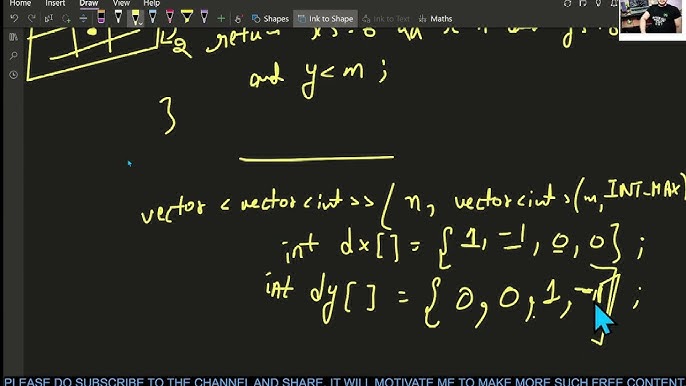 Home Insert Draw View Help
Shapes Ink to Shape Ink to Text Maths
return x >= 0 && x < n and y >= 0
and y < m ;
}
vector < vector<int>> ( n, vector<int>(m, INT_MAX)
int dx[] = { 1, -1, 0, 0} ;
int dy[] = { 0, 0, 1, -1} ;
PLEASE DO SUBSCRIBE TO THE CHANNEL AND SHARE IT WILL MOTIVATE ME TO MAKE MORE SUCH FREE CONTENT